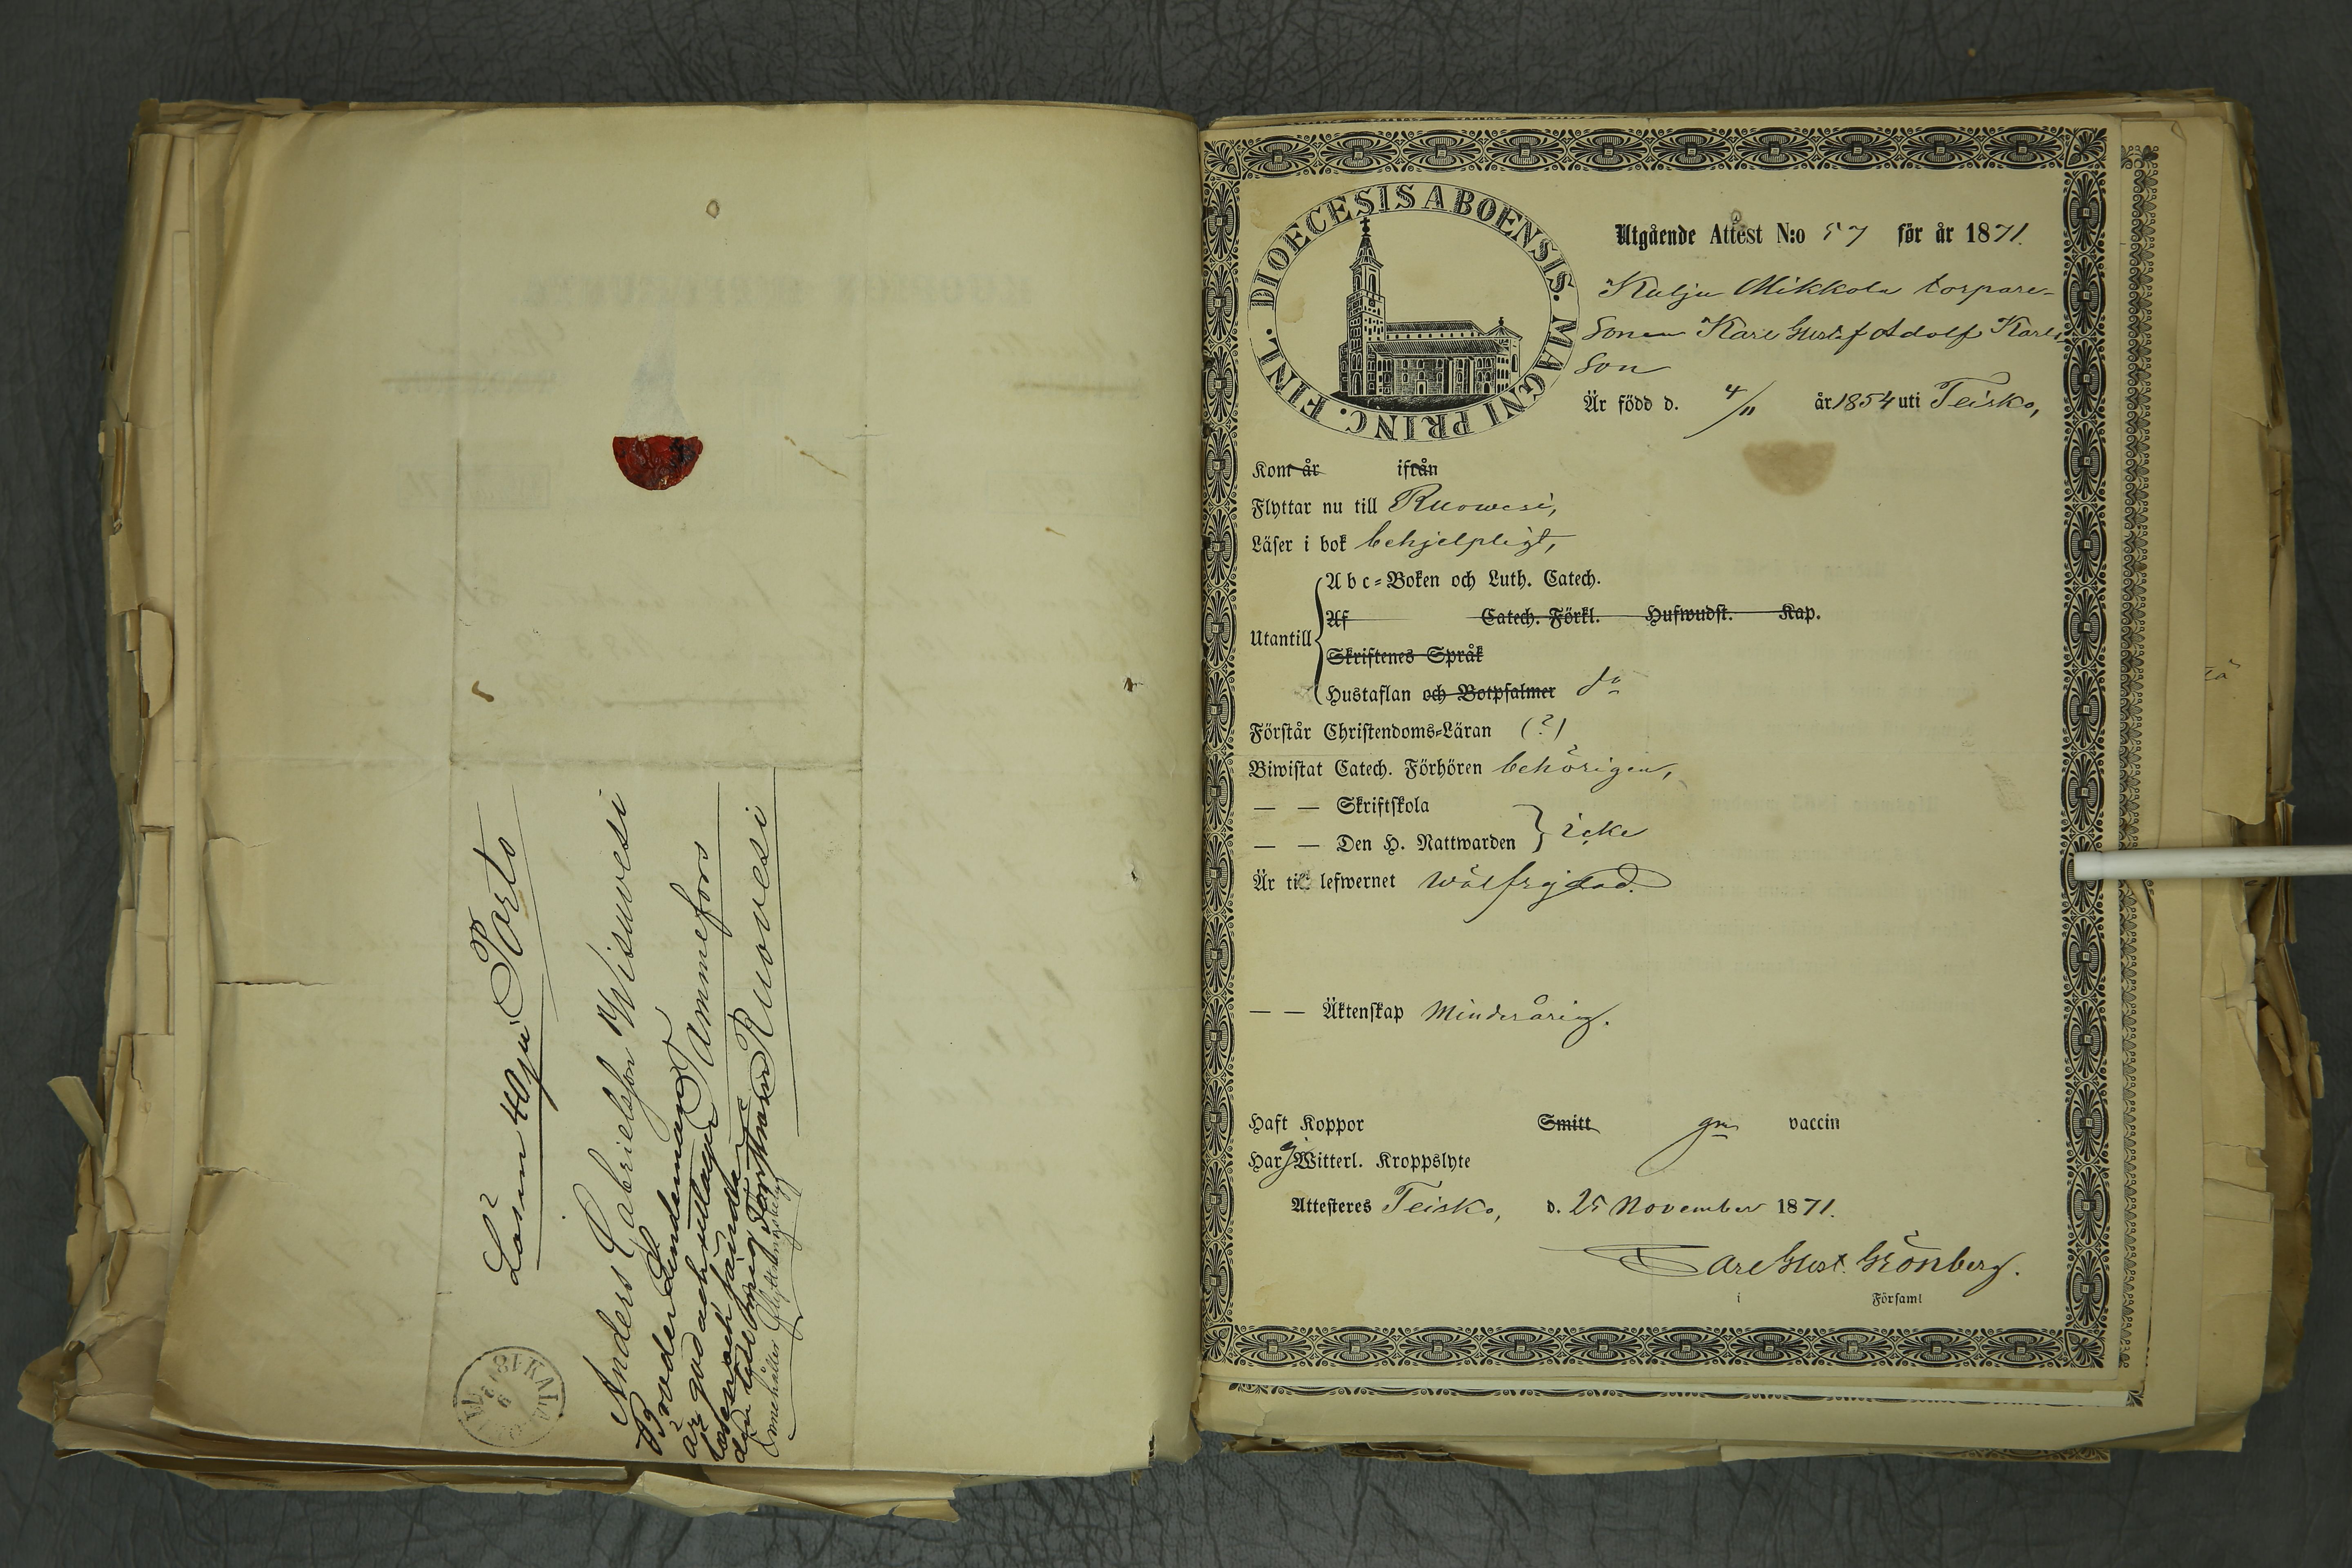 Lösen 40 pi Porto
Anders Gabrielsson Wisuvesi
Broder Lindeman Tammefors
är god och uttager
lösen och sänder
Ruovesi
Innehåller flyttningsbetyg
DIOECESIS ABOENSIS. MAGNI PRINC. FINL.
Utgående Attest N:o 57 för år 1871.
Kulju Mikkola torpare-
sonen Karl Gustaf Adolf Karls-
son
Är född d. 4/11 år 1854 uti Teisko,
Kom år ifrån
Flyttar nu till Ruowesi,
Läser i bok behjelpligt,
Utantill
Abc-Boken och Luth. Catech.
Af Catech. Förkl. Hufwudst. Kap.
Skriftenes Språk
Hustaflan och Botpsalmer do
Förstår Christendoms-Läran (?)
Biwistat Catech. Förhören behörigen,
— — Skriftskola
— — Den H. Nattwarden } icke
Är till lefwernet wälfrejdad.
— — Äktenskap Minderårig.
Haft Koppor Smitt gm vaccin
Har ej Witterl. Kroppslyte
Attesteras Teisko, d. 25 November 1871.
Carl Gust. Grönberg.
i Församl